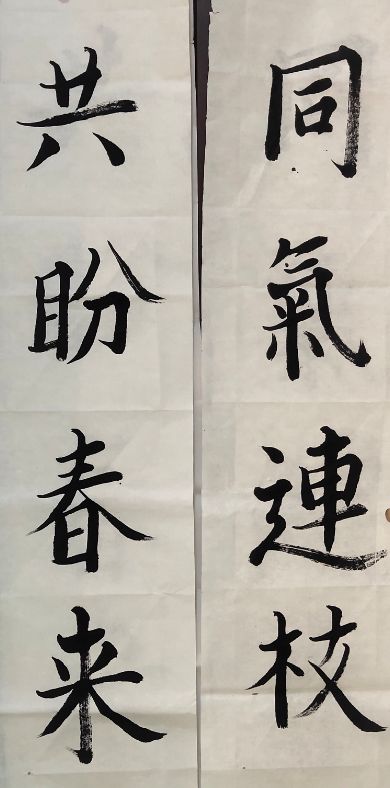 同氣連枝
共盼春来